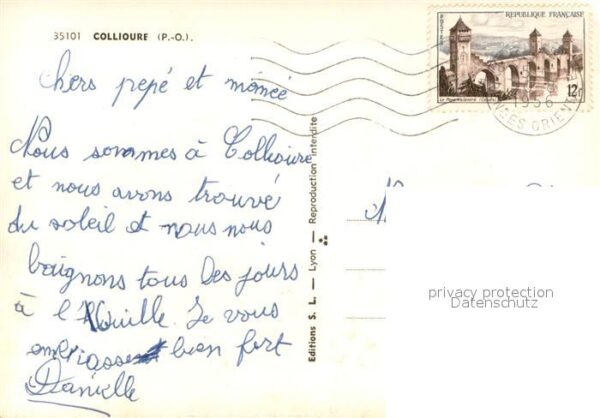 35101 COLLIOURE (P.-O.).
chers pepé et mémée
Nous sommes à Collioure
et nous avons trouvé
du soleil et nous nous
baignons tous les jours
à l'Ouille Je vous
embrasse bien fort
Danielle
Editions S. L. — Lyon — Reproduction interdite
POSTES
REPUBLIQUE FRANÇAISE
12F
1956
ÉES ORIENT
privacy protection
Datenschutz